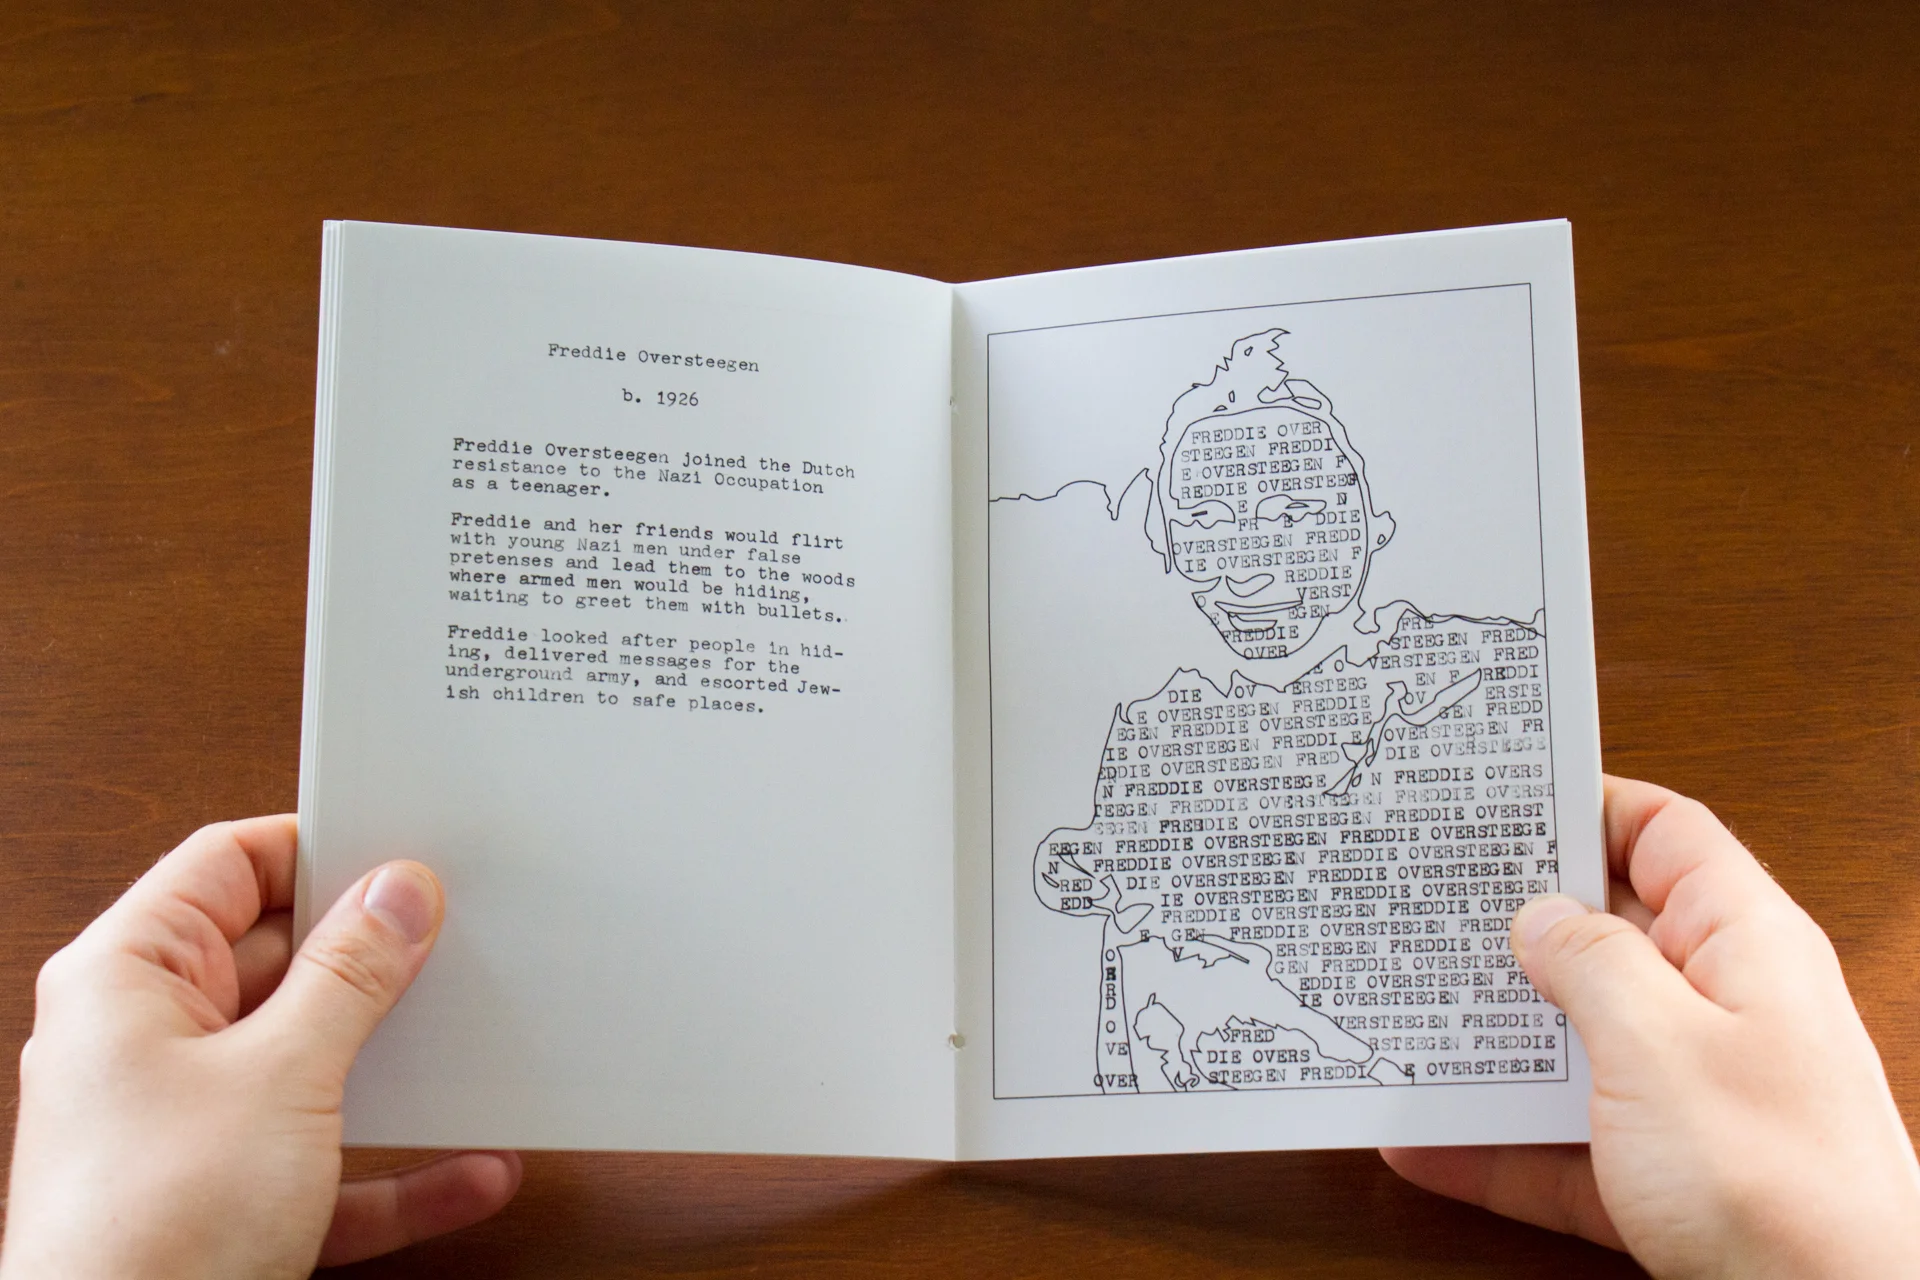 Freddie Oversteegen
b. 1926
Freddie Oversteegen joined the Dutch
resistance to the Nazi Occupation
as a teenager.
Freddie and her friends would flirt
with young Nazi men under false
pretenses and lead them to the woods
where armed men would be hiding,
waiting to greet them with bullets.
Freddie looked after people in hid-
ing, delivered messages for the
underground army, and escorted Jew-
ish children to safe places.
FREDDIE OVER
STEEGEN FREDDI
E OVERSTEEGEN F
REDDIE OVERSTEEG
E N
FR E DDIE
OVERSTEEGEN FREDD
IE OVERSTEEGEN F
REDDIE
O VERST
E EGEN
FREDDIE
OVER
FRE
STEEGEN FREDD
E O VERSTEEGEN FRED
DIE OV ERSTEEG EN F REDDI
E OVERSTEEGEN FREDDIE OV ERSTE
EGEN FREDDIE OVERSTEEGE GEN FREDD
IE OVERSTEEGEN FREDDI E OVERSTEEGEN FR
EDDIE OVERSTEEGEN FRED DIE OVERSTEEGE
N FREDDIE OVERSTEEGE N FREDDIE OVERS
TEEGEN FREDDIE OVERSTEEGEN FREDDIE OVERST
EEGEN FREDDIE OVERSTEEGEN FREDDIE OVERST
EEGEN FREDDIE OVERSTEEGEN FREDDIE OVERSTEEGE
N FREDDIE OVERSTEEGEN FREDDIE OVERSTEEGEN F
RED DIE OVERSTEEGEN FREDDIE OVERSTEEGEN FR
EDD IE OVERSTEEGEN FREDDIE OVERSTEEGEN
FREDDIE OVERSTEEGEN FREDDIE OVER
E GEN FREDDIE OVERSTEEGEN FREDD
V ERSTEEGEN FREDDIE OV
O GEN FREDDIE OVERSTEEG
EDDIE OVERSTEEGEN FR
R IE OVERSTEEGEN FREDDI
D
O VERSTEEGEN FREDDIE O
VE FRED RSTEEGEN FREDDIE
DIE OVERS
OVER STEEGEN FREDDI E OVERSTEEGEN